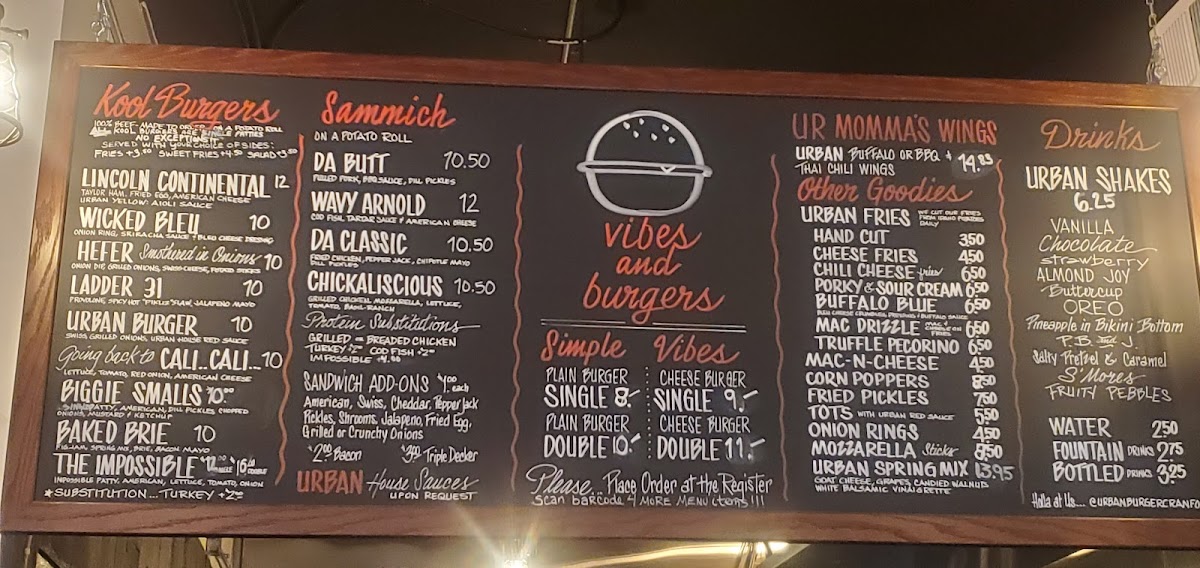 Kool Burgers
100% BEEF. MADE TO ORDER. ON A POTATO ROLL
ALL KOOL BURGERS ARE SINGLE PATTIES
NO EXCEPTIONS!!
SERVED WITH YOUR CHOICE OF SIDES:
FRIES +3.50 SWEET FRIES +4.50 SALAD +3.50
LINCOLN CONTINENTAL 12
TAYLOR HAM, FRIED EGG, AMERICAN CHEESE
URBAN YELLOW: AIOLI SAUCE
WICKED BLEU 10
ONION RING, SRIRACHA SAUCE + BLEU CHEESE DRESSING
HEFER Smothered in Onions 10
ONION DIP, GRILLED ONIONS, SWISS CHEESE, POTATO STICKS
LADDER 31 10
PROVOLONE, SPICY HOT "PIKLE" SLAW, JALAPENO MAYO
URBAN BURGER 10
SWISS, GRILLED ONIONS, URBAN HOUSE RED SAUCE
Going back to CALI..CALI.. 10
LETTUCE, TOMATO, RED ONION, AMERICAN CHEESE
BIGGIE SMALLS 10.00
PATTY, AMERICAN, DILL PICKLES, CHOPPED
ONIONS, MUSTARD & KETCHUP
BAKED BRIE 10
FIG JAM, SPRING MIX, BRIE, BACON MAYO
THE IMPOSSIBLE SINGLE DOUBLE
IMPOSSIBLE PATTY, AMERICAN, LETTUCE, TOMATO, ONION
*SUBSTITUTION... TURKEY +2.00
Sammich
ON A POTATO ROLL
DA BUTT 10.50
PULLED PORK, BBQ SAUCE, DILL PICKLES
WAVY ARNOLD 12
COD FISH, TARTAR SAUCE & AMERICAN CHEESE
DA CLASSIC 10.50
FRIED CHICKEN, PEPPER JACK, CHIPOTLE MAYO
DILL PICKLES
CHICKALISCIOUS 10.50
GRILLED CHICKEN, MOZZARELLA, LETTUCE,
TOMATO, BASIL-RANCH
Protein Substitutions
GRILLED OR BREADED CHICKEN
TURKEY +2.00 COD FISH +2.00
IMPOSSIBLE +4.00
SANDWICH ADD-ONS $1.00 each
American, Swiss, Cheddar, Pepper Jack
Pickles, Shrooms, Jalapeno, Fried Egg,
Grilled or Crunchy Onions
$2.00 Bacon $3.00 Triple Decker
URBAN House Sauces
UPON REQUEST
vibes
and
burgers
Simple Vibes
PLAIN BURGER
SINGLE 8.-
PLAIN BURGER
DOUBLE 10.-
CHEESE BURGER
SINGLE 9.-
CHEESE BURGER
DOUBLE 11.-
Please... Place Order at the Register
scan barcode 4 MORE MENU items!!!
UR MOMMA'S WINGS
URBAN BUFFALO OR BBQ & 14.89
THAI CHILI WINGS
Other Goodies
URBAN FRIES WE CUT OUR FRIES
FROM IDAHO POTATOES
DAILY
HAND CUT 3.50
CHEESE FRIES 4.50
CHILI CHEESE fries 6.50
PORKY & SOUR CREAM 6.50
BUFFALO BLUE 6.50
BLEU CHEESE CRUMBLES, DRESSING & BUFFALO SAUCE
MAC DRIZZLE MAC & CHEESE ON FRIES 6.50
TRUFFLE PECORINO 6.50
MAC-N-CHEESE 4.50
CORN POPPERS 8.50
FRIED PICKLES 7.50
TOTS WITH URBAN RED SAUCE 5.50
ONION RINGS 4.50
MOZZARELLA Sticks 8.50
URBAN SPRING MIX 13.95
GOAT CHEESE, GRAPES, CANDIED WALNUTS,
WHITE BALSAMIC VINAIGRETTE
Drinks
URBAN SHAKES
6.25
VANILLA
Chocolate
strawberry
ALMOND JOY
Buttercup
OREO
Pineapple in Bikini Bottom
P.B. and J.
Salty Pretzel & Caramel
S'Mores
FRUITY PEBBLES
WATER 2.50
FOUNTAIN DRINKS 2.75
BOTTLED DRINKS 3.25
Holla at Us.... @URBANBURGERCRANFO